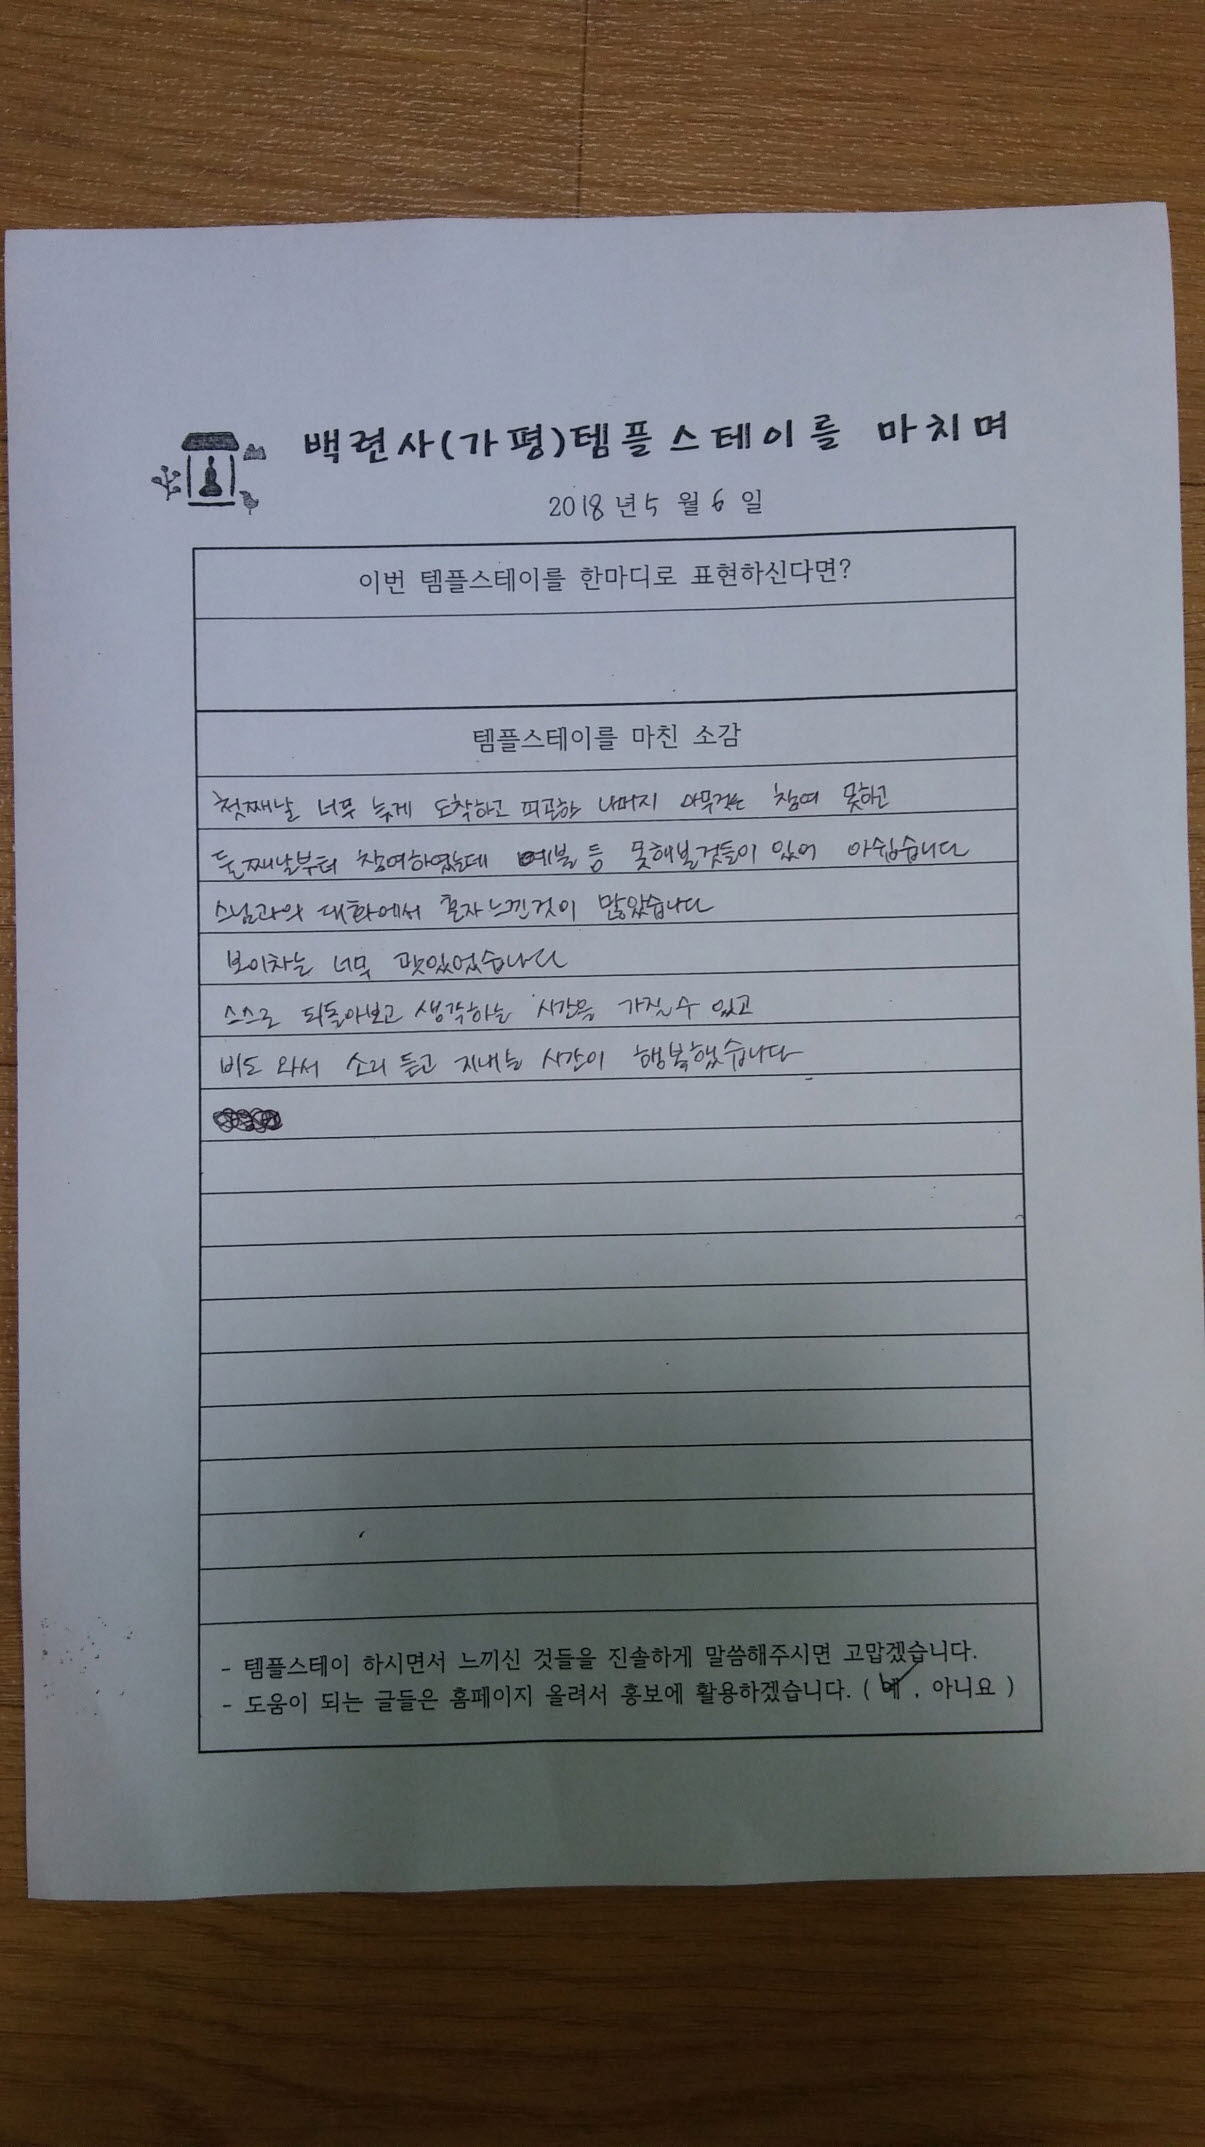 백련사(가평)템플스테이를 마치며
2018년 5월 6일
이번 템플스테이를 한마디로 표현하신다면?
템플스테이를 마친 소감
첫째날 너무 늦게 도착하고 피곤한 나머지 아무것도 참여 못하고
둘째날부터 참여하였는데 예불 등 못해본것들이 있어 아쉽습니다
스님과의 대화에서 혼자느낀것이 많았습니다
보이차는 너무 맛있었습니다
스스로 되돌아보고 생각하는 시간을 가질수 있고
비도 와서 소리 듣고 지내는 시간이 행복했습니다
- 템플스테이 하시면서 느끼신 것들을 진솔하게 말씀해주시면 고맙겠습니다.
- 도움이 되는 글들은 홈페이지 올려서 홍보에 활용하겠습니다. ( 예 , 아니요 )